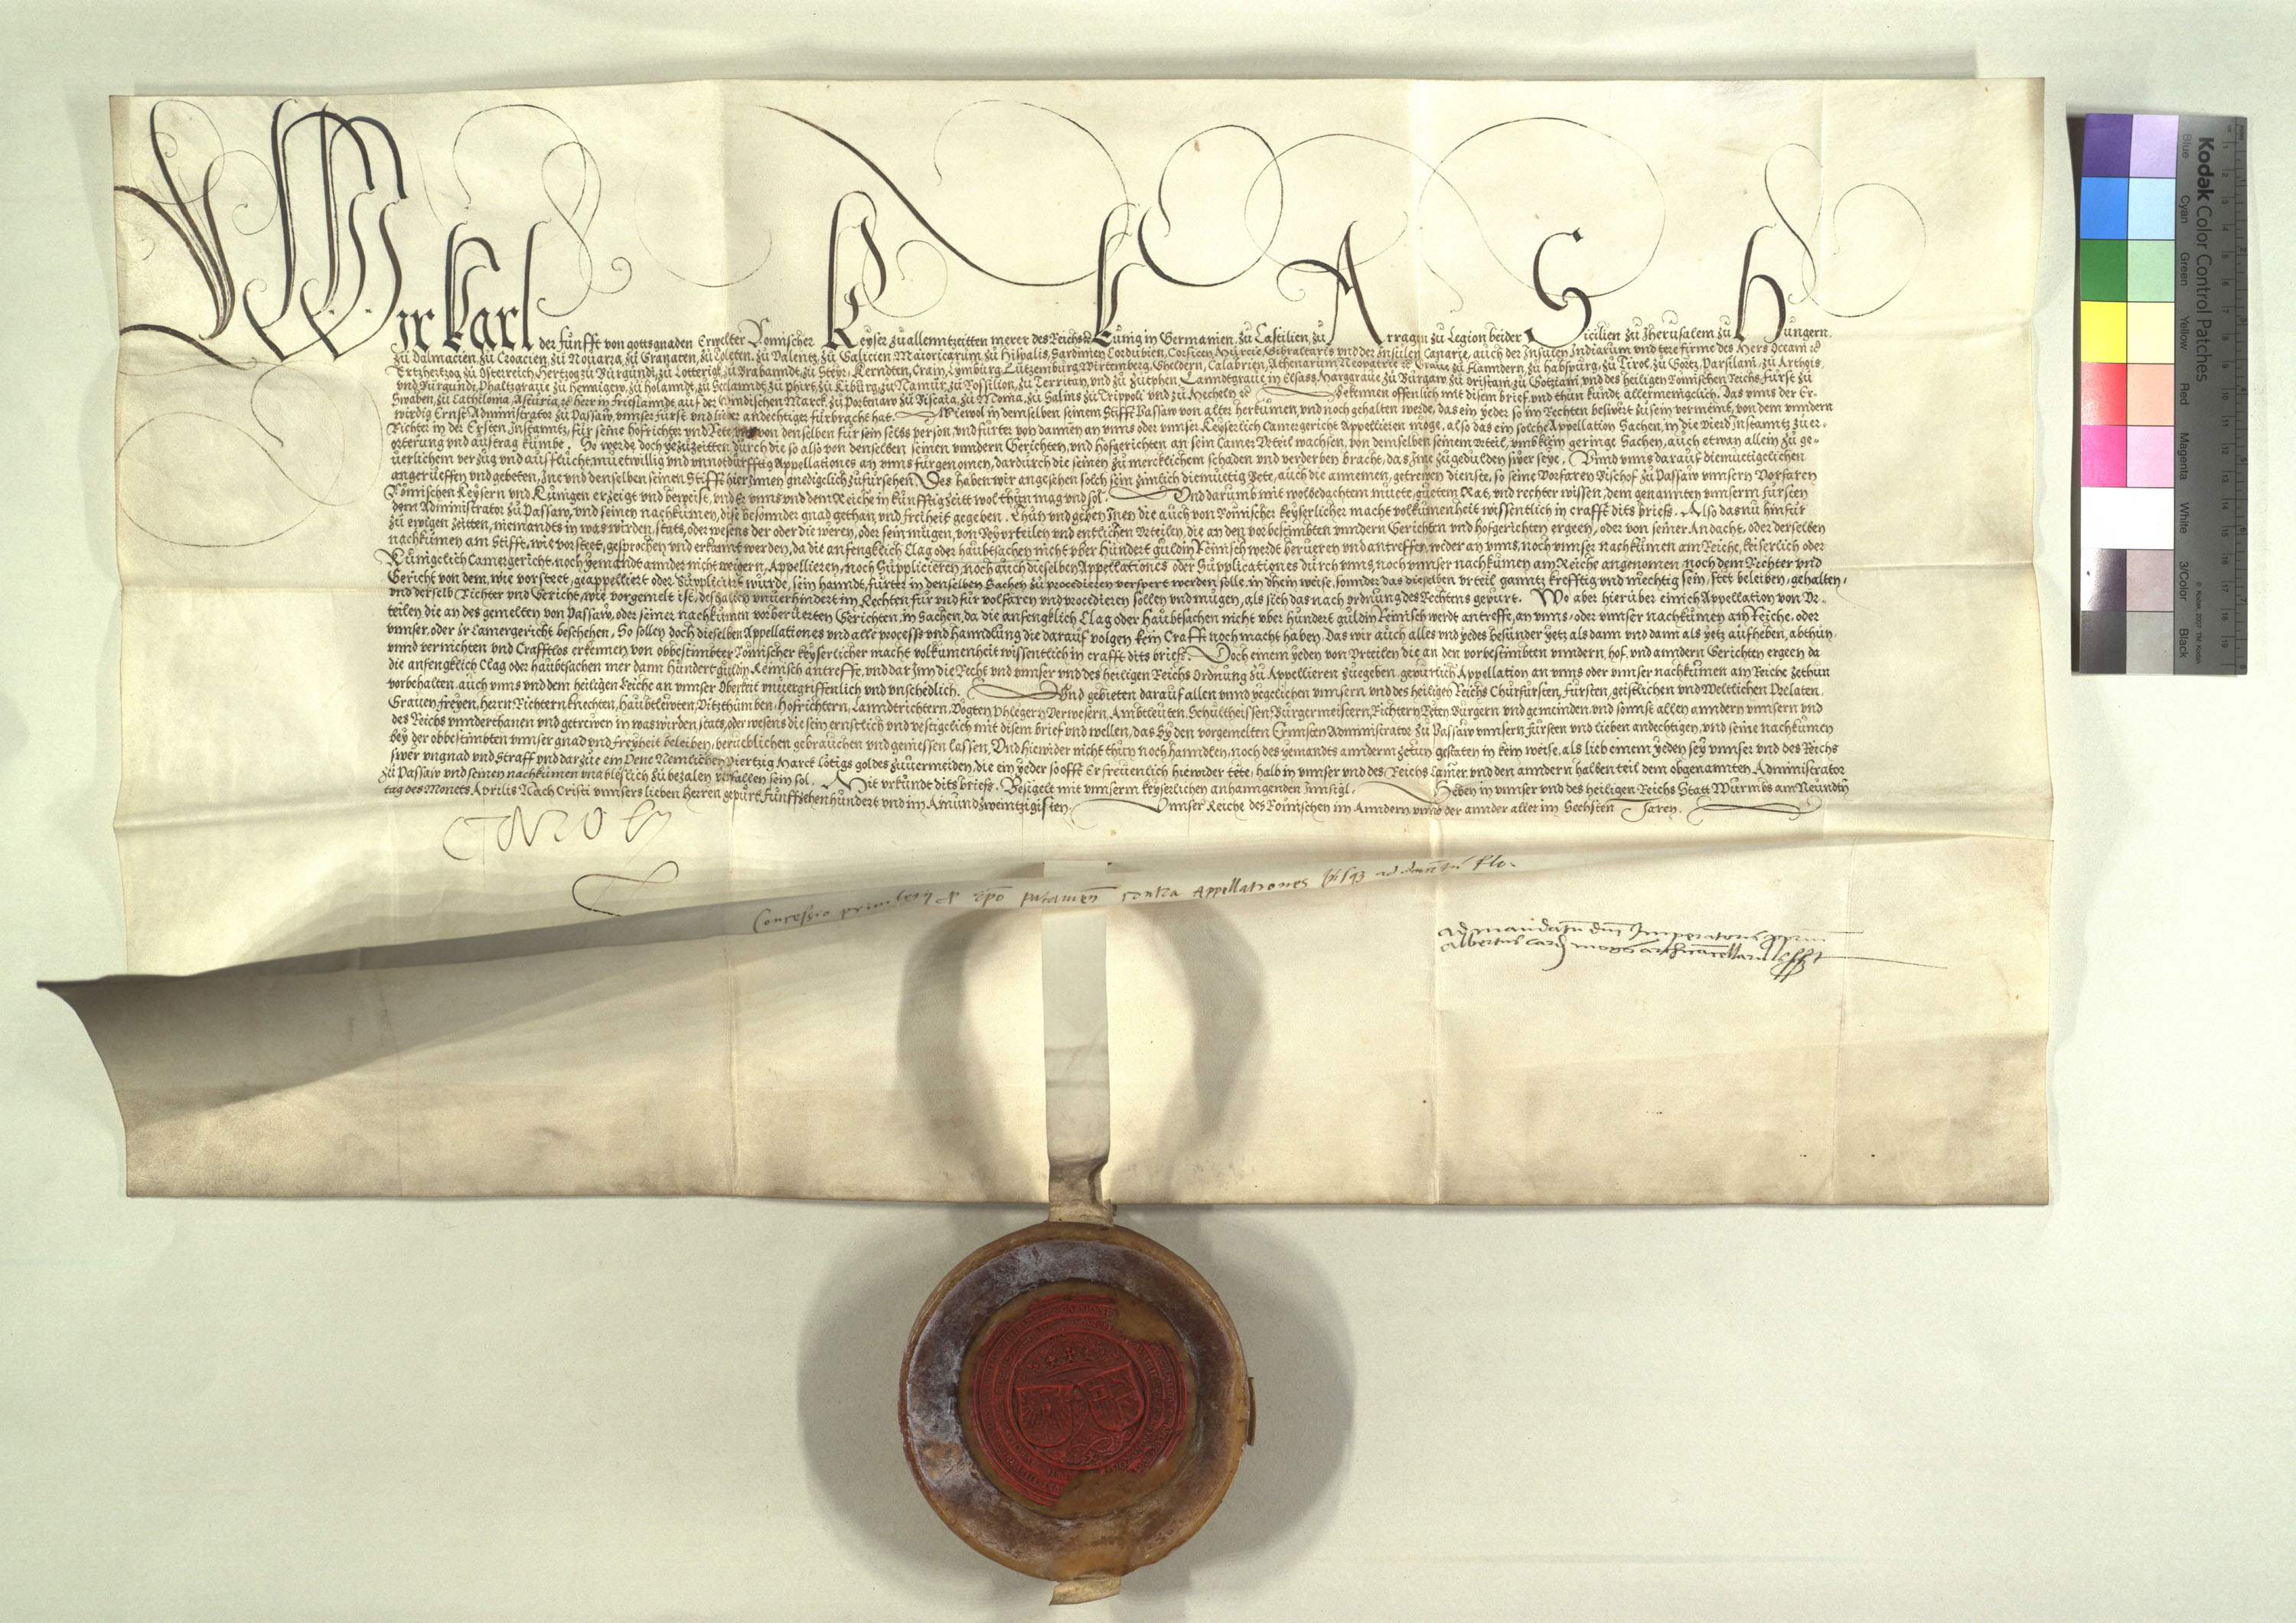 Wir Karl der funfft von gottsgnaden Erwelter Romischer Keyser zu allenntzeitten merer des Reichs rc Kunig in Germanien, zu Castilien, zu Arragon zu Legion beider Sicilien zu Jherusalem zu Hungern,
zu Dalmacien zu Croacien, zu Nouarra, zu Granaten, zu Toleten, zu Valentz, zu Galicien Maioricarum, zu Hispalis, Sardinien Cordubien, Corsicen Murcie, Gibraltaris vnd der Insulen Canarie, auch der Insulen Indiarum vnd terre firme des Mers Oceani rc
Ertzhertzog zu Osterreich, Hertzog zu Burgundi, zu Lotterigk, zu Brabanndt, zu Steyr, Kerndten, Crain, Lymburg, Lutzemburg, Wirtemberg, Gheldern, Calabrien, Athenarum, Neopatrie rc Graue zu Flanndern, zu Habspurg, zu Tirol, zu Gortz, Parsilani, zu Arthois,
vnd Burgundi, Phaltzgraue zu Henigew, zu Holanndt, zu Seelanndt, zu Phirt, zu Kiburg, zu Namur, zu Rossilion, zu Territan, vnd zu Zutphen, Lanndtgraue in Elsass, Marggraue zu Burgaw, zu Oristani, zu Gotziani, vnd des heiligen Romischen Reichs, Furst zu
Swaben, zu Cathilonia, Asturia, rc Herr in Frieslanndt auf der Windischen Marck, zu Portenaw, zu Biscaia, zu Monia, zu Salins zu Trippoli vnd zu Mecheln rc Bekennen offenlich mit disem brief, vnd thun kundt allermenigclich. Das vnns der Er-
wirdig Ernst Administrator zu Passaw, vnnser furst vnd lieber andechtiger furbracht hat. Wiewol in demselben seinem Stifft Passaw von alter herkumen, vnd noch gehalten werde, das ein yeder so im Rechten beswert zu sein vermeint, von dem vnndern
Richter in der Ersten Instanntz, für seine hofrichter vnd Rete, vnd von denselben für sein selbs person, vnd furter von dannen an vnns oder vnnser Keyserlich Camergericht Appellieren moge, also das ein solche Appellation Sachen, in die vierd Instanntz zu er-
orterung vnd austrag kumbt. So werde doch yezuzeitten durch die so also von denselben seinen vnndern Gerichten, vnd hofgerichten an sein Camer Vrteil wachsen, von demselben seinem vrteil, vmb klein geringe Sachen, auch etwan allein zu ge-
uerlichem verzug vnd ausflucht, muetwillig vnd vnnotdurfftig Appellationes an vnns furgenomen, dardurch die seinen zu mercklichem schaden vnd verderben bracht, das Ime zugedulden swer seye. Vnnd vnns darauf diemuetigclichen
angerueffen vnd gebeten, Ine vnd denselben seinen Stifft hierInnen gnediglich zufürsehen. Des haben wir angesehen solch sein zimlich diemuetig Bete, auch die annemen, getrewen dienste, so seine Vorfaren Bischof zu Passaw vnnsern Vorfaren
Romischen Keysern vnd Kunigen erzeigt vnd beweist, vnd Er vnns vnd dem Reiche in kunfftig zeit wol thun mag vnd sol. Vnd darumb mit wolbedachtem muete, guetem Rat, vnd rechter wissen, dem genannten vnnserm fürsten
dem Administrator zu Passaw, vnd seinen nachkumen, dise besonnder gnad gethan, vnd freiheit gegeben. Thun vnd geben Inen die auch von Romischer keyserlicher macht volkumenheit wissentlich in crafft dits briefs. Also das nu hinfür
zu ewigen zeitten, niemandts in was wirden, stats, oder wesens der oder die weren, oder sein mugen, von Beyvrteilen vnd entlichen Vrteilen, die an den vorbestimbten vnndern Gerichten vnd hofgerichten ergeen, oder von seiner Andacht, oder derselben
nachkumen am Stifft, wie vorsteet, gesprochen vnd erkannt werden, da die anfengklich Clag oder haubtsachen nicht vber Hundert guldin Reinisch werdt berueren vnd antreffen, weder an vnns, noch vnnser nachkumen am Reiche, keiserlich oder
Kunigclich Camergericht, noch yemandt annder nicht weigern, Appellieren, noch Supplicieren, noch auch dieselben Appellationes oder Supplicationes durch vnns, noch vnnser nachkumen am Reiche angenomen, noch dem Richter vnd
Gericht von dem, wie vorsteet, geappelliert oder Suppliciert wurde, sein hanndt, furter in denselben Sachen zu procedieren verspert werden solle, in dhein weise, sonnder das dieselben vrteil ganntz krefftig vnd mechtig sein, stet beleiben, gehalten,
vnd derselb Richter vnd Gericht, wie vorgemelt ist, deshalben vnuerhindert im Rechten für vnd für volfaren vnd procedieren sollen vnd mugen, als sich das nach ordnung des Rechtens gepurt. Wo aber hierüber einich Appellation von Vr-
teilen die an des gemelten von Passaw, oder seiner nachkumen vorberuerten Gerichten, in Sachen, da die anfengklich Clag oder Haubtsachen nicht vber hundert guldin Reinisch werdt antreffe, an vnns, oder vnnser nachkumen am Reiche, oder
vnnser, oder Ir Camergericht beschehen, So sollen doch dieselben Appellationes vnd alle process vnd hanndlung die darauf volgen kein Crafft noch macht haben. Das wir auch alles vnd yedes besunder yetz als dann vnd dann als yetz aufheben, abthun,
vnnd vernichten vnd Crafftlos erkennen von obbestimbter Romischer keyserlicher macht volkumenheit wissentlich in crafft dits briefs. Doch einem yeden von Vrteilen die an den vorbestimbten vnndern, hof, vnd anndern Gerichten ergeen da
die anfengklich Clag oder haubtsachen mer dann hundert guldin Reinisch antreffe, vnd darInn die Recht vnd vnnser vnd des heiligen Reichs Ordnung zu Appellieren zugeben, gepurlich Appellation an vnns oder vnnser nachkumen am Reiche zethun
vorbehalten, auch vnns vnd dem heiligen Reiche an vnnser Oberkeit vnuergriffenlich vnd vnschedlich. Vnd gebieten darauf allen vnnd yegclichen vnnsern vnd des heiligen Reichs Churfürsten, Fursten, geistlichen vnd Weltlichen Prelaten,
Grauen, freyen, herrn Rittern knechten, haubtlewten, Vitzthumben, Hofrichtern, Lanndtrichtern, Vogten phlegern Verwesern, Ambtleuten, Schultheissen, Burgermeistern, Richtern Reten, Burgern vnd gemeinden, vnd sonnst allen anndern vnnsern vnd
des Reichs vnnderthanen vnd getrewen in was wirden stats, oder wesens die sein ernstlich vnd vestigclich mit disem brief vnd wellen, das Sy den vorgemelten Ernnsten Administrator zu Passaw vnnsern fursten vnd lieben andechtigen, vnd seine nachkumen
bey der obbestimbten vnnser gnad vnd freyheit beleiben, berueblichen gebrauchen vnd geniessen lassen, Vnd hiewider nicht thun noch hanndlen, noch des yemandts annderm zetun gestaten in kein weise, als lieb einem yeden sey vnnser vnd des Reichs
swer vngnad vnd Straff vnd darzue ein Pene Nemlichen Viertzig Marck lotigs goldes zuuermeiden, die ein yeder so offt Er freuenlich hiewider tete, halb in vnnser vnd des Reichs Camer, vnd den anndern halben teil dem obgenannten Administrator
zu Passaw vnd seinen nachkumen vnableslich zubezalen verfallen sein sol. Mit vrkundt dits briefs. Besigelt mit vnnserm keyserlichen anhanngenden Innsigl. Geben in vnnser vnd des heiligen Reichs Statt Wurmbs am Neundtn
tag des Monets Aprilis Nach Cristi vnnsers lieben Herren gepurt Funffzehenhundert vnd im Ainundzweintzigisten, Vnnser Reiche des Romischen im Anndern, vnnd der annder aller im Sechsten Jaren.
Carolus
Concessio priuilegy contra Appellationes
ad mandatum dni Imperatoris
Albertus Card
Kodak Color Control Patches
Blue Cyan Green Yellow Red Magenta White 3/Color Black
© Kodak, 2007 TM: Kodak